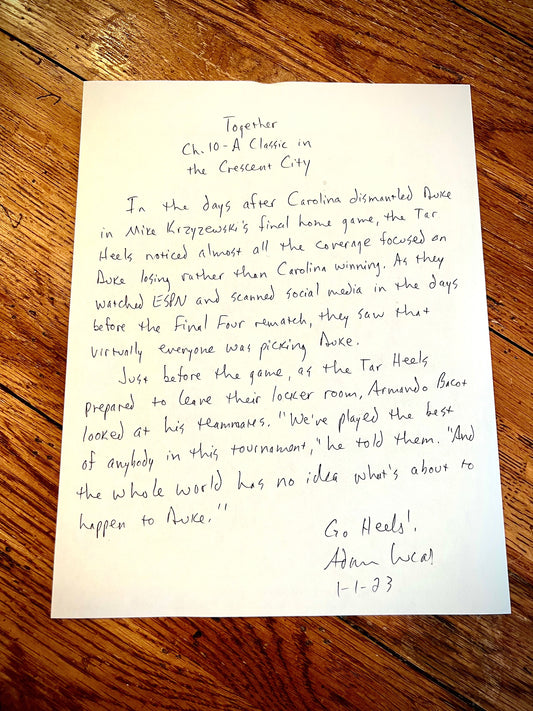 Together
Ch. 10 - A Classic in
the Crescent City
In the days after Carolina dismantled Duke
in Mike Krzyzewski's final home game, the Tar
Heels noticed almost all the coverage focused on
Duke losing rather than Carolina winning. As they
watched ESPN and scanned social media in the days
before the Final Four rematch, they saw that
virtually everyone was picking Duke.
Just before the game, as the Tar Heels
prepared to leave their locker room, Armando Bacot
looked at his teammates. "We've played the best
of anybody in this tournament," he told them. "And
the whole world has no idea what's about to
happen to Duke."
Go Heels!
Adam Lucas
1-1-23